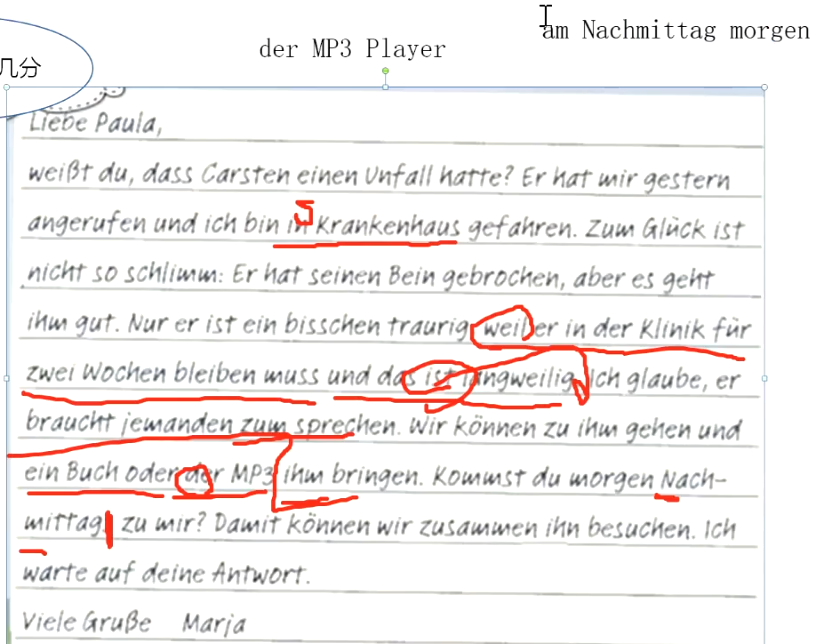 am Nachmittag morgen
der MP3 Player
几分
Liebe Paula,
weißt du, dass Carsten einen Unfall hatte? Er hat mir gestern
angerufen und ich bin in Krankenhaus gefahren. Zum Glück ist
s
nicht so schlimm: Er hat seinen Bein gebrochen, aber es geht
ihm gut. Nur er ist ein bisschen traurig, weil er in der Klinik für
zwei Wochen bleiben muss und das ist langweilig. Ich glaube, er
braucht jemanden zum sprechen. Wir können zu ihm gehen und
ein Buch oder der MP3 ihm bringen. Kommst du morgen Nach-
mittag zu mir? Damit können wir zusammen ihn besuchen. Ich
warte auf deine Antwort.
Viele Gruße Marja